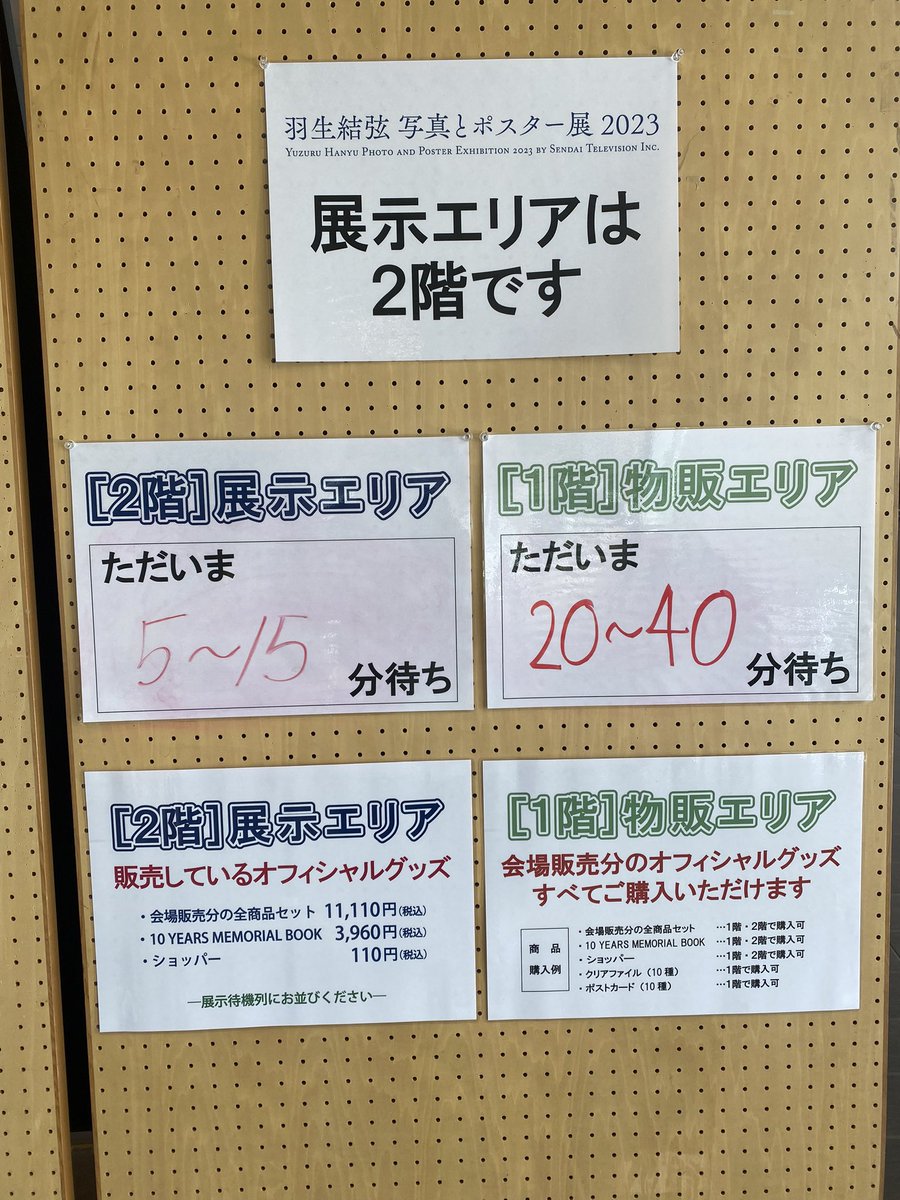 羽生結弦 写真とポスター展 2023
YUZURU HANYU PHOTO AND POSTER EXHIBITION 2023 BY SENDAI TELEVISION INC.
展示エリアは
2階です
[2階]展示エリア
ただいま
5〜15
分待ち
[1階]物販エリア
ただいま
20〜40
分待ち
[2階]展示エリア
販売しているオフィシャルグッズ
・会場販売分の全商品セット 11,110円(税込)
・10 YEARS MEMORIAL BOOK 3,960円(税込)
・ショッパー 110円(税込)
―展示待機列にお並びください―
[1階]物販エリア
会場販売分のオフィシャルグッズ
すべてご購入いただけます
商 品
購入例
・会場販売分の全商品セット …1階・2階で購入可
・10 YEARS MEMORIAL BOOK …1階・2階で購入可
・ショッパー …1階・2階で購入可
・クリアファイル(10種) …1階で購入可
・ポストカード(10種) …1階で購入可